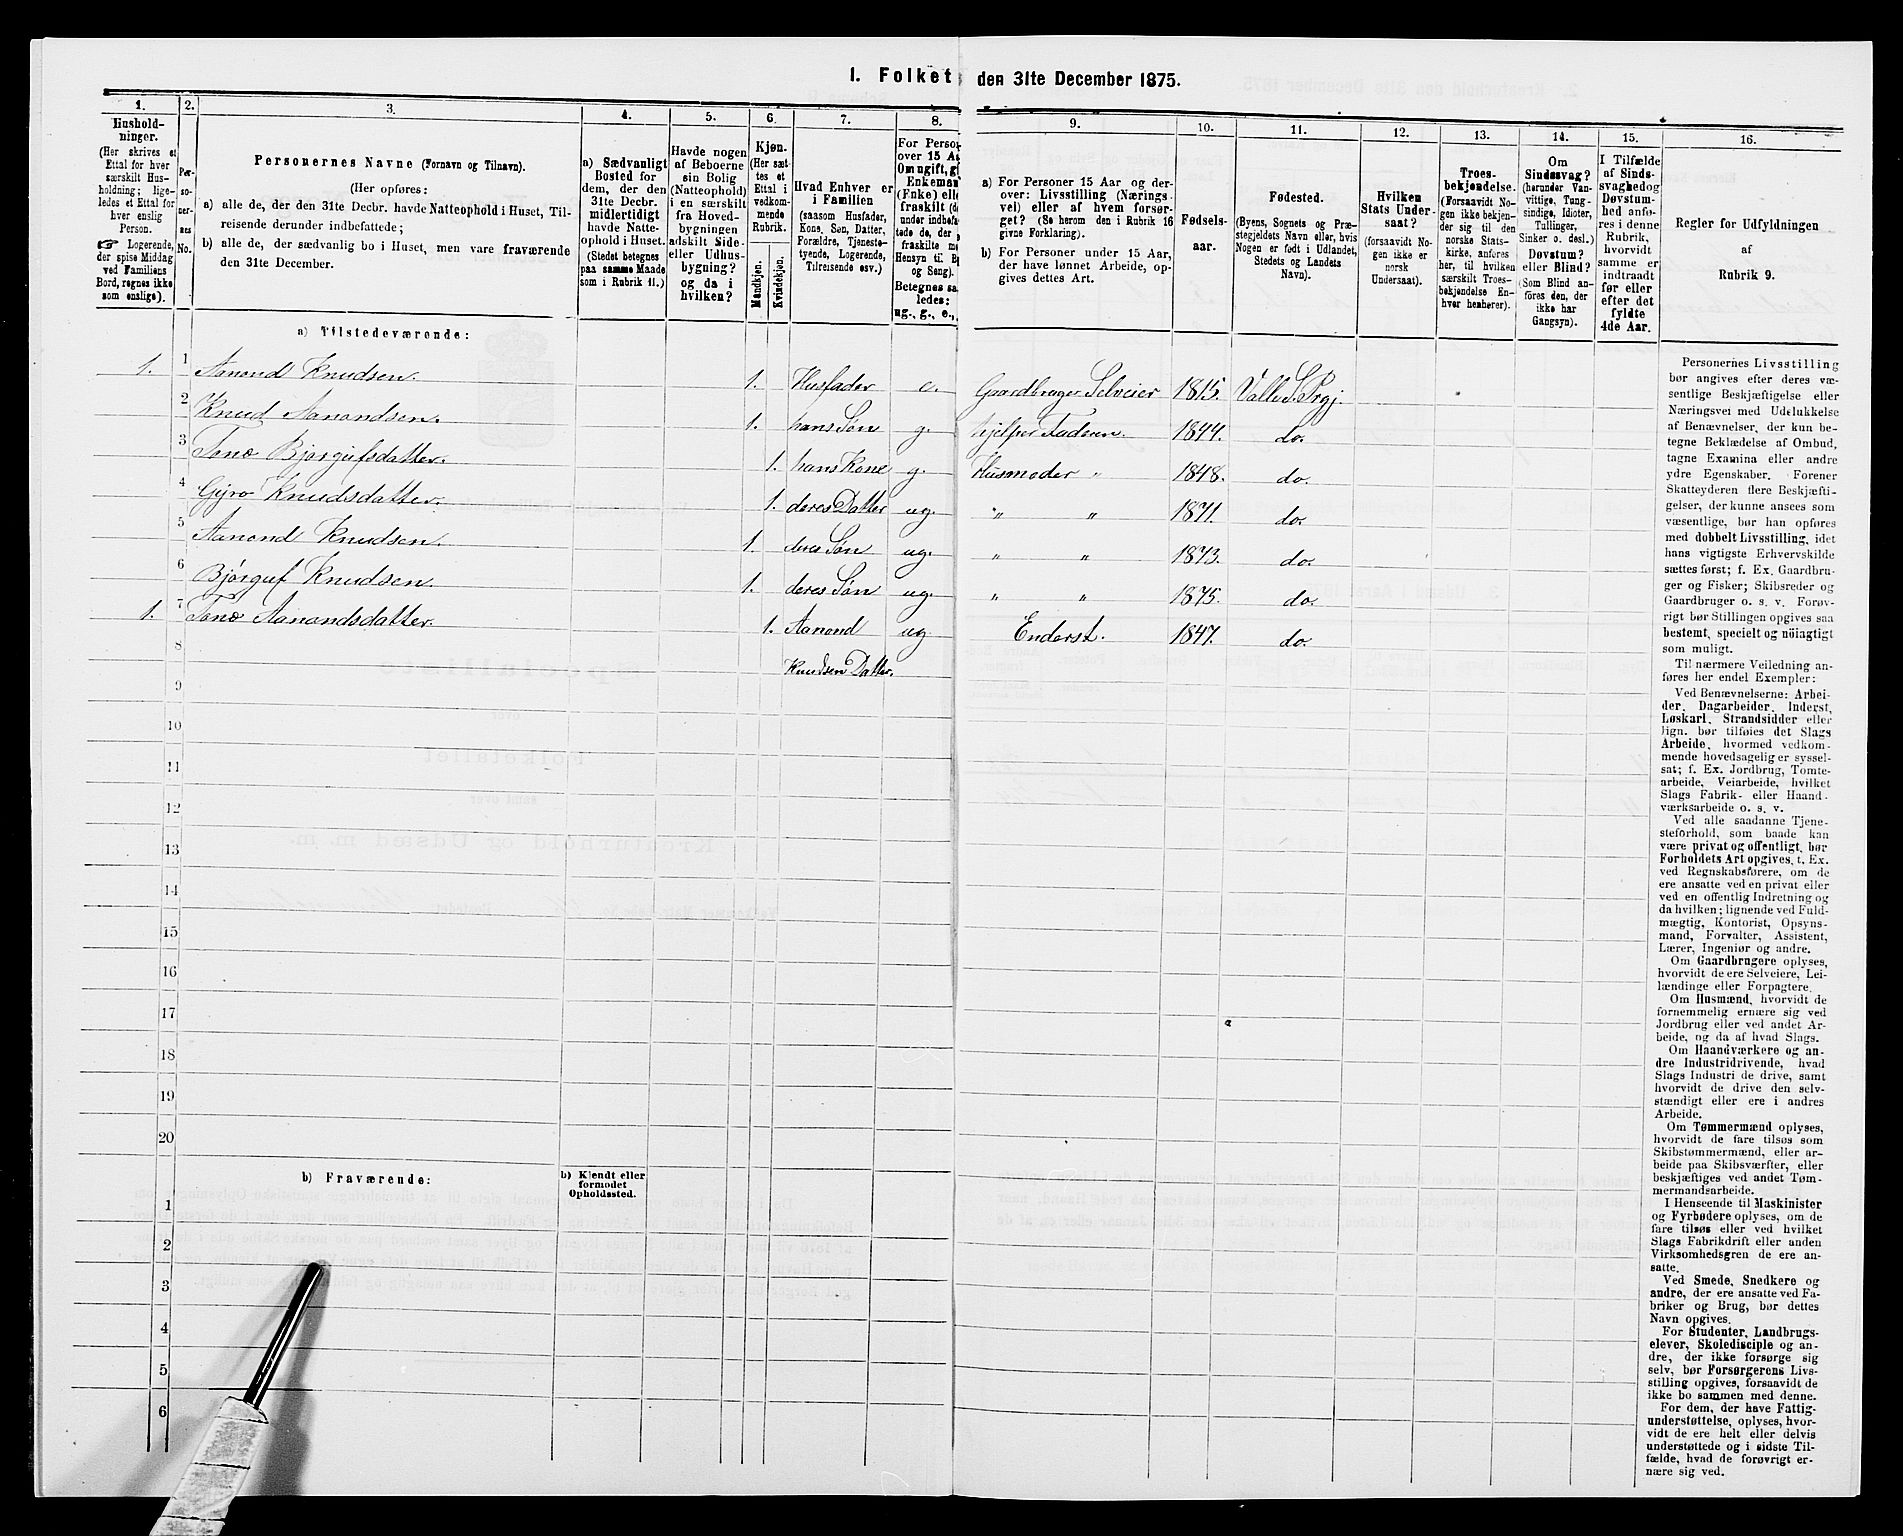 1. Folket
den 31te December 1875.
1.
2.
3.
4.
5.
6.
7.
8.
9.
10.
11.
12.
13.
14.
15.
16.
Hushold-
ninger.
(Her skrives et
Ettal for hver
særskilt Hus-
holdning; lige-
ledes et Ettal for
hver enslig
Person.
☞ Logerende,
der spise Middag
ved Familiens
Bord, regnes ikke
som enslige).
Per-
so-
ner-
nes
No.
Personernes Navne (Fornavn og Tilnavn).
(Her opføres:
a) alle de, der den 31te Decbr. havde Natteophold i Huset, Til-
reisende derunder indbefattede;
b) alle de, der sædvanlig bo i Huset, men vare fraværende
den 31te December.
a) Sædvanligt
Bosted for
dem, der den
31te Decbr.
midlertidigt
havde Natte-
ophold i Huset.
(Stedet betegnes
paa samme Maade
som i Rubrik 11.)
Havde nogen
af Beboerne
sin Bolig
(Natteophold)
i en særskilt
fra Hoved-
bygningen
adskilt Side-
eller Udhus-
bygning?
og da i
hvilken?
Kjøn.
(Her sæt-
tes et
Ettal i
vedkom-
mende
Rubrik.
Mandkjøn.
Kvindekjøn.
Hvad Enhver er
i Familien
(saasom Husfader,
Kone, Søn, Datter,
Forældre, Tjeneste-
tyende, Logerende,
Tilreisende osv.)
For Person
over 15 Aa
Om ugift, gi
Enkeman
(Enke) elle
fraskilt (de
under indbefat
tede de, der
fraskilte m
Hensyn til B
og Seng).
Betegnes sa
ledes:
ug., g., e.,
a) For Personer 15 Aar og der-
over: Livsstilling (Nærings-
vei) eller af hvem forsør-
get? (Se herom den i Rubrik 16
givne Forklaring).
b) For Personer under 15 Aar,
der have lønnet Arbeide, op-
gives dettes Art.
Fødsels-
aar.
Fødested.
(Byens, Sognets og Præ-
stegjeldets Navn eller, hvis
Nogen er født i Udlandet,
Stedets og Landets
Navn).
Hvilken
Stats Under-
saat?
(forsaavidt No-
gen ikke er
norsk
Undersaat).
Troes-
bekjendelse.
(Forsaavidt No-
gen ikke bekjen-
der sig til den
norske Stats-
kirke, anføres
her, til hvilken
særskilt Troes-
bekjendelse En-
hver henhører).
Om
Sindssvag?
(herunder Van-
vittige, Tung-
sindige, Idioter,
Tullinger,
Sinker o. desl.)
Døvstum?
eller Blind?
(Som Blind an-
føres den, der
ikke har
Gangsyn).
I Tilfælde
af Sinds-
svaghed og
Døvstum-
hed anfø-
res i denne
Rubrik,
hvorvidt
samme er
indtraadt
før eller
efter det
fyldte
4de Aar.
Regler for Udfyldningen
af
Rubrik 9.
a) Tilstedeværende:
1. 1 Aanond Knudsen. 1. Husfader e. Gaardbruger Selveier 1815. Valle S. Prgj.
2 Knud Aanondsen. 1. hans Søn g. hjelper Faderen. 1844. do.
3 Tone Bjørgufsdatter. 1. hans Kone g. Husmoder " 1848. do.
4 Gyro Knudsdatter. 1. deres Datter ug. " " 1871. do.
5 Aanond Knudsen. 1. deres Søn ug. " " 1873. do.
6 Bjørguf Knudsen. 1. deres Søn ug. " " 1875. do.
1. 7 Tone Aanondsdatter. 1. Aanond ug Enderst. 1847. do.
8 Knudsen Datter.
9
10
11
12
13
14
15
16
17
18
19
20
b) Fraværende:
b) Kjendt eller
formodet
Opholdssted.
1
2
3
4
5
6
Personernes Livsstilling
bør angives efter deres væ-
sentlige Beskjæftigelse eller
Næringsvei med Udelukkelse
af Benævnelser, der kun be-
tegne Beklædelse af Ombud,
tagne Examina eller andre
ydre Egenskaber. Forener
Skatteyderen flere Beskjæfti-
gelser, der kunne ansees som
væsentlige, bør han opføres
med dobbelt Livsstilling, idet
hans vigtigste Erhvervskilde
sættes først; f. Ex. Gaardbru-
ger og Fisker; Skibsreder og
Gaardbruger o. s. v. Forøv-
rigt bør Stillingen opgives saa
bestemt, specielt og nøiagtigt
som muligt.
Til nærmere Veiledning an-
føres her endel Exempler:
Ved Benævnelserne: Arbei-
der, Dagarbeider, Inderst,
Løskarl, Strandsidder eller
lign. bør tilføies det Slags
Arbeide, hvormed vedkom-
mende hovedsagelig er syssel-
sat; f. Ex. Jordbrug, Tomte-
arbeide, Veiarbeide, hvilket
Slags Fabrik- eller Haand-
værksarbeide o. s. v.
Ved alle saadanne Tjene-
steforhold, som baade kan
være privat og offentligt, bør
Forholdets Art opgives, t. Ex.
ved Regnskabsførere, om de
ere ansatte ved en privat eller
ved en offentlig Indretning og
da hvilken; lignende ved Fuld-
mægtig, Kontorist, Opsyns-
mand, Forvalter, Assistent,
Lærer, Ingeniør og andre.
Om Gaardbrugere oplyses,
hvorvidt de ere Selveiere, Lei-
lændinge eller Forpagtere.
Om Husmænd, hvorvidt de
fornemmelig ernære sig ved
Jordbrug eller ved andet Ar-
beide, og da af hvad Slags.
Om Haandværkere og an-
dre Industridrivende, hvad
Slags Industri de drive, samt
hvorvidt de drive den selv-
stændigt eller ere i andres
Arbeide.
Om Tømmermænd oplyses,
hvorvidt de fare tilsøs som
Skibstømmermænd, eller ar-
beide paa Skibsværfter, eller
beskjæftiges ved andet Tøm-
mermandsarbeide.
I Henseende til Maskinister
og Fyrbødere oplyses, om de
fare tilsøs eller ved hvilket
Slags Fabrikdrift eller anden
Virksomhedsgren de ere an-
satte.
Ved Smede, Snedkere og
andre, der ere ansatte ved Fa-
briker og Brug, bør dettes
Navn opgives.
For Studenter, Landbrugs-
elever, Skoledisciple og an-
dre, der ikke forsørge sig
selv, bør Forsørgerens Livs-
stilling opgives, forsaavidt de
ikke bo sammen med denne.
For dem, der have Fattig-
understøttelse, oplyses, hvor-
vidt de ere helt eller delvis
understøttede og i sidste Til-
fælde, hvad de forøvrigt er-
nære sig ved.